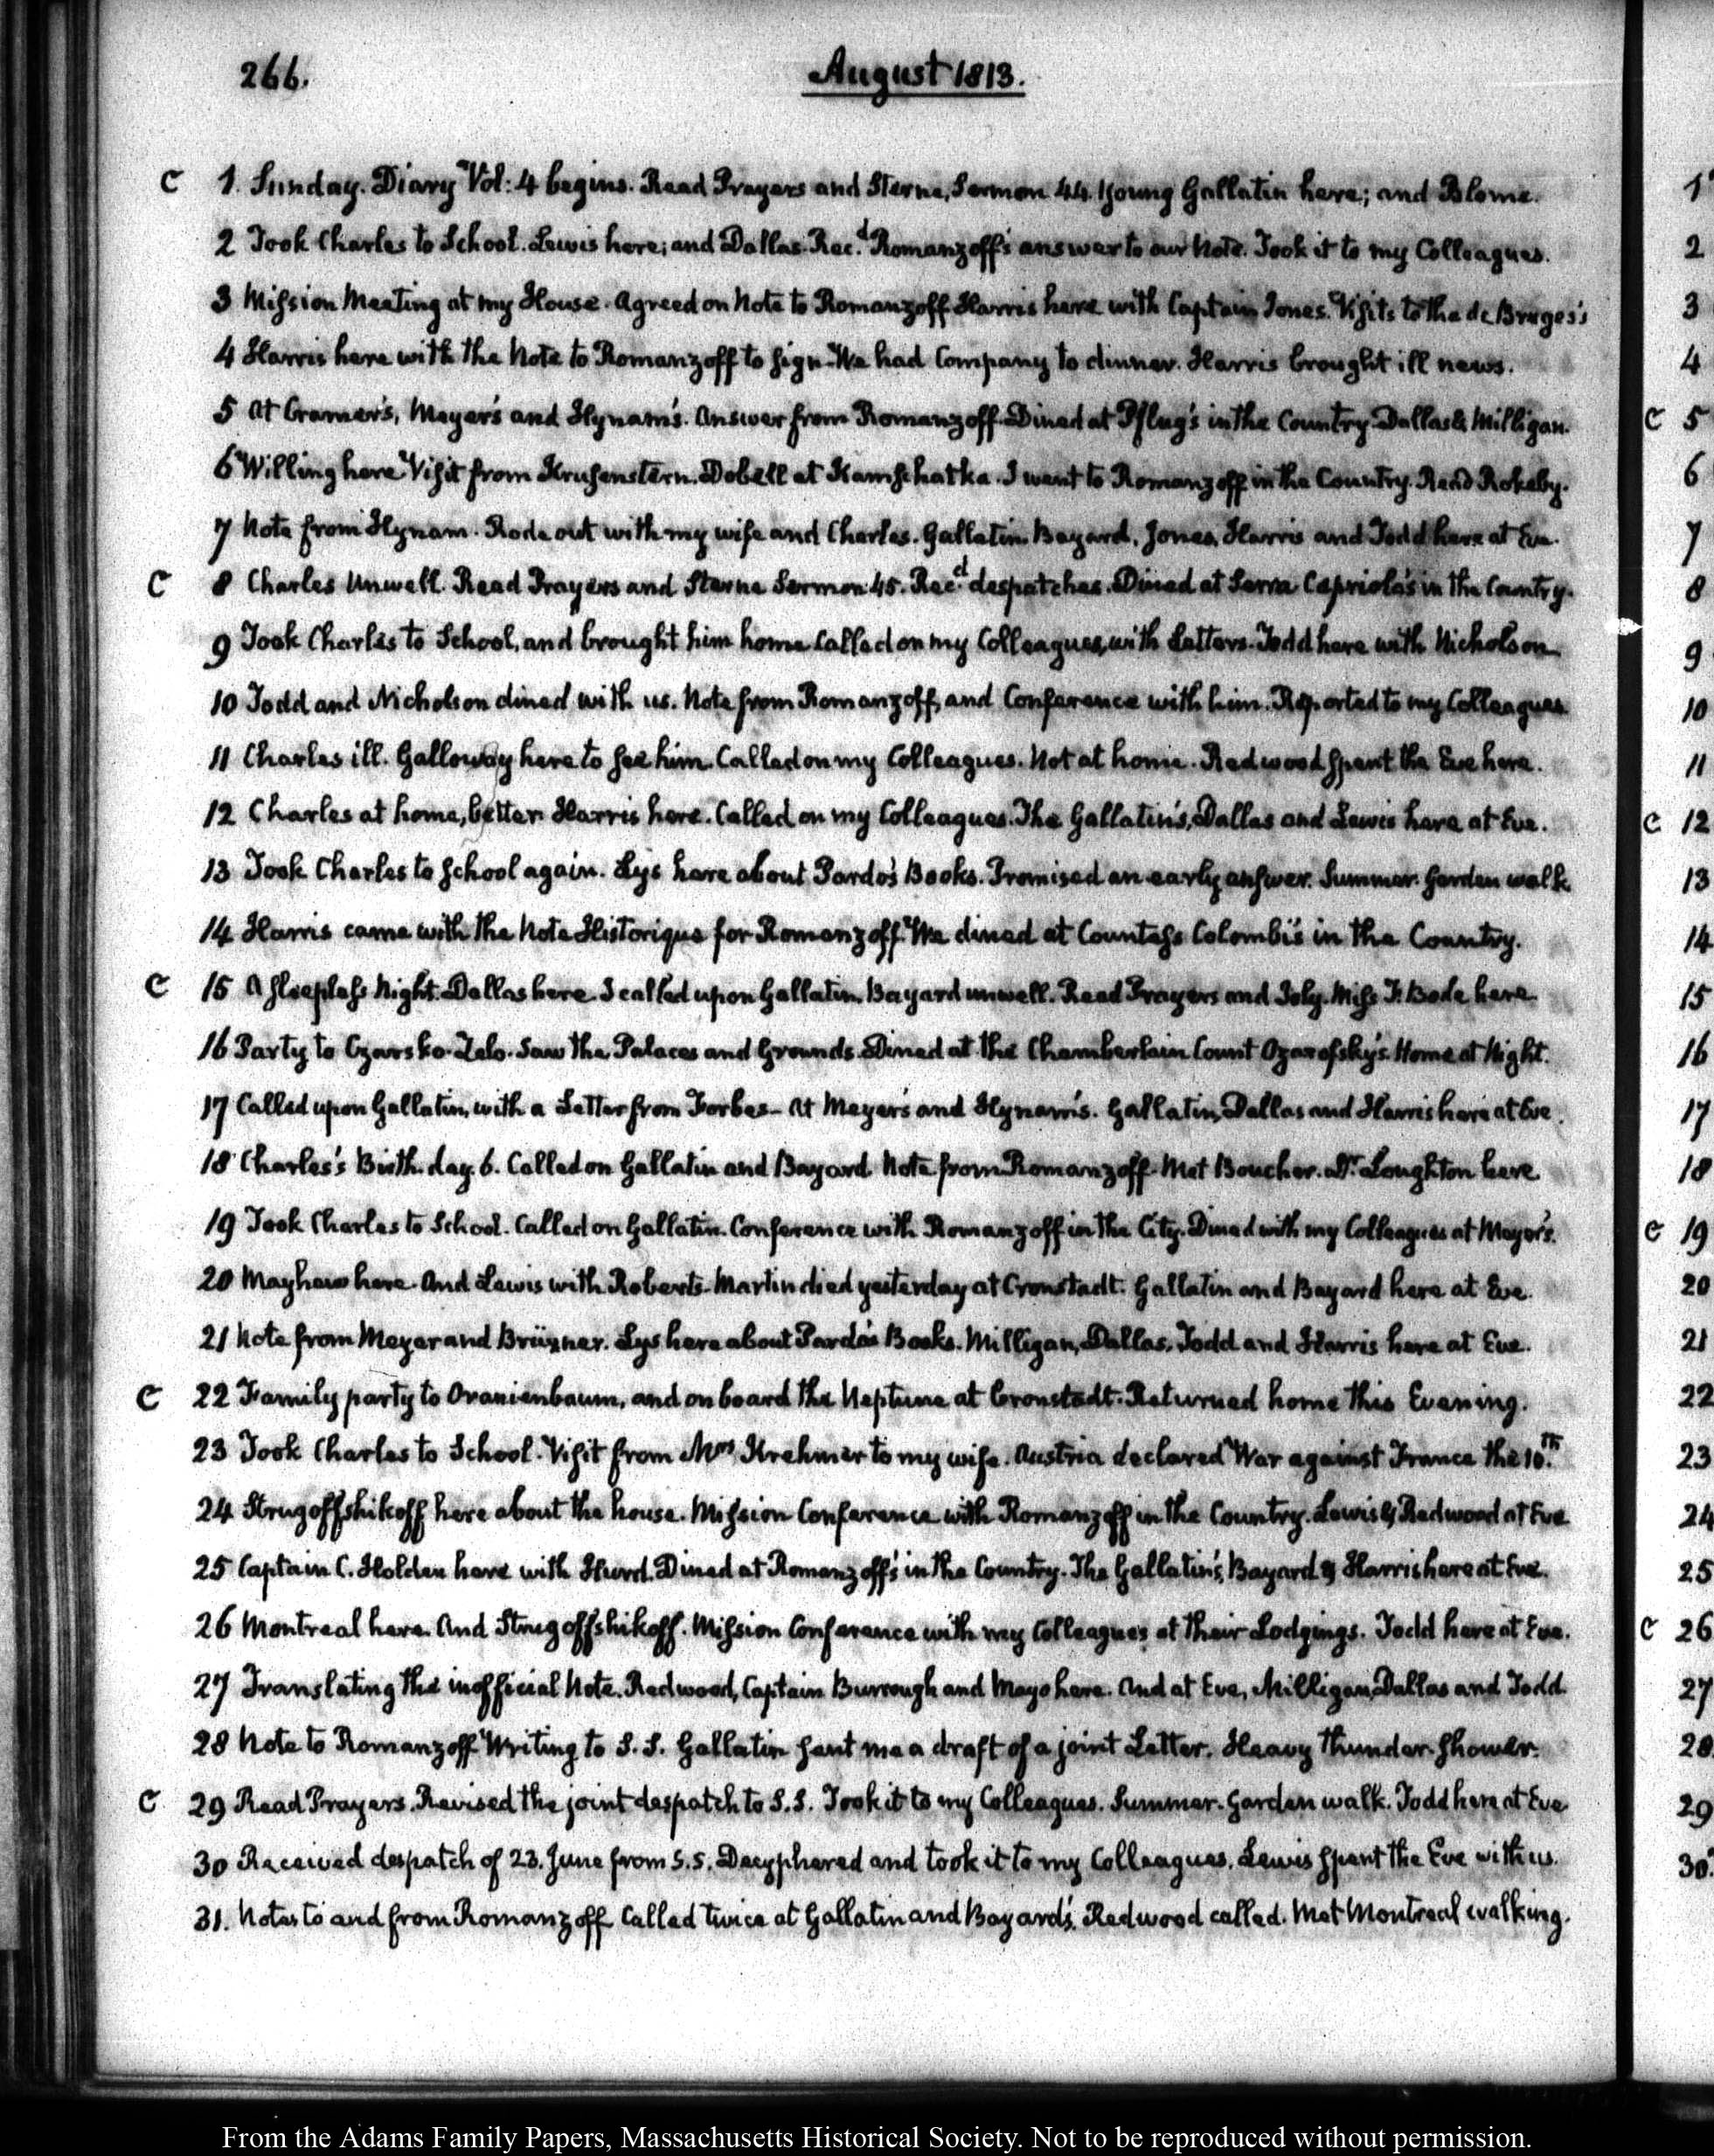 266.
August 1813.
C 1. Sunday. Diary Vol: 4 begins. Read Prayers and Sterne, Sermon 44. Young Gallatin here; and Blome.
2 Took Charles to School. Lewis here; and Dallas. Rec.d Romanzoff's answer to our Note. Took it to my Colleagues.
3 Mission Meeting at my House. Agreed on Note to Romanzoff. Harris here with Captain Jones. Visits to the de Bruges's
4 Harris here with the Note to Romanzoff to sign. We had Company to dinner. Harris brought ill news.
5 At Cramer's, Meyer's and Hynam's. Answer from Romanzoff. Dined at Pflug's in the Country. Dallas & Milligan.
6 Willing here. Visit from Krusenstern. Dobell at Kamschatka. I went to Romanzoff in the Country. Read Rokeby.
7 Note from Hynam. Rode out with my wife and Charles. Gallatin. Bayard, Jones, Harris and Todd here at Eve.
C 8 Charles Unwell. Read Prayers and Sterne Sermon 45. Rec.d despatches. Dined at Serra Capriola's in the Country.
9 Took Charles to School, and brought him home. Called on my Colleagues, with Letters. Todd here with Nicholson
10 Todd and Nicholson dined with us. Note from Romanzoff, and Conference with him. Reported to my Colleagues.
11 Charles ill. Galloway here to see him. Called on my Colleagues. Not at home. Redwood spent the Eve here.
12 Charles at home, better. Harris here. Called on my Colleagues. The Gallatin's, Dallas and Lewis here at Eve.
13 Took Charles to school again. Lys here about Pardo's Books. Promised an early answer. Summer. Garden walk.
14 Harris came with the Note Historique for Romanzoff. We dined at Countess Colombi's in the Country.
C 15 A sleepless Night. Dallas here. I called upon Gallatin. Bayard unwell. Read Prayers and Joly. Miss F. Bode here.
16 Party to Czarsko-Zelo. Saw the Palaces and Grounds. Dined at the Chamberlain Count Ozarofsky's. Home at Night.
17 Called upon Gallatin, with a Letter from Forbes. At Meyer's and Hynam's. Gallatin, Dallas and Harris here at Eve.
18 Charles's Birth-day. 6. Called on Gallatin and Bayard. Note from Romanzoff. Met Boucher. Dr. Loughton here.
19 Took Charles to School. Called on Gallatin. Conference with Romanzoff in the City. Dined with my Colleagues at Meyer's.
20 Mayhew here. And Lewis with Roberts. Martin died yesterday at Cronstadt. Gallatin and Bayard here at Eve.
21 Note from Meyer and Brüxner. Lys here about Pardo's Books. Milligan, Dallas, Todd and Harris here at Eve.
C 22 Family party to Oranienbaum, and on board the Neptune at Cronstadt. Returned home this Evening.
23 Took Charles to School. Visit from Mrs Krehmer to my wife. Austria declared War against France the 10.th
24 Strugoffshikoff here about the house. Mission Conference with Romanzoff in the Country. Lewis & Redwood at Eve
25 Captain C. Holden here with Hurd. Dined at Romanzoff's in the Country. The Gallatin's, Bayard & Harris here at Eve.
26 Montreal here. And Strugoffshikoff. Mission Conference with my Colleagues at their Lodgings. Todd here at Eve.
27 Translating the inofficial Note. Redwood, Captain Burrough and Mayo here. And at Eve, Milligan, Dallas and Todd.
28 Note to Romanzoff. Writing to S. S. Gallatin sent me a draft of a joint Letter. Heavy thunder-shower.
C 29 Read Prayers. Revised the joint despatch to S. S. Took it to my Colleagues. Summer-Garden walk. Todd here at Eve
30 Received despatch of 23. June from S. S. Decyphered and took it to my Colleagues. Lewis spent the Eve with us.
31. Notes to and from Romanzoff. Called twice at Gallatin and Bayard's. Redwood called. Met Montreal walking.
1
2
3
4
C 5
6
7
8
9
10
11
C 12
13
14
15
16
17
18
C 19
20
21
22
23
24
25
C 26
27
28
29
30.
From the Adams Family Papers, Massachusetts Historical Society. Not to be reproduced without permission.